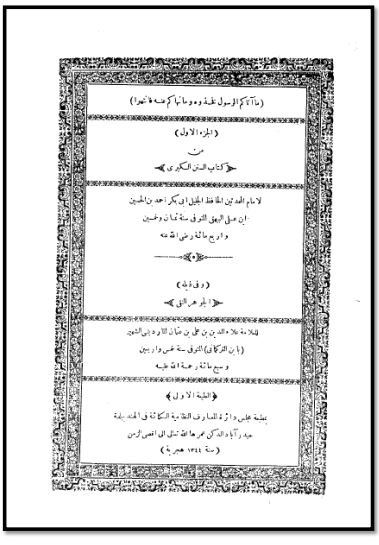 (ما آتاكم الرسول فخذوه وما نهاكم عنه فانتهوا)
(الجزء الاول)
من
كتاب السنن الكبرى
لامام المحدثين الحافظ الجليل ابى بكر احمد بن الحسين
ابن على البيهقى المتوفى سنة ثمان وخمسين
واربع مائة رضى الله عنه
(وفى ذيله)
الجوهر النقى
للعلامة علاء الدين بن على بن عثمان المارديني الشهير
(بابن التركمانى) المتوفى سنة خمس واربعين
وسبع مائة رحمة الله عليه
الطبعة الاولى
بمطبعة مجلس دائرة المعارف النظامية الكائنة فى الهند ببلدة
حيدرآباد الدكن عمرها الله تعالى الى اقصى الزمن
(سنة ١٣٤٤ هجرية)